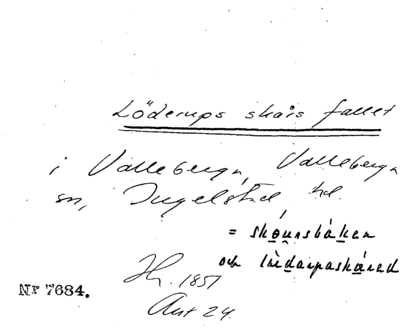 Löderups skärs fallet
i Valleberga, Valleberga
sn, Ingelstad hd.
= skǫu̯nsbáken
och lǜdarpaskáred
1851
Akt 24.
Nr 7684.